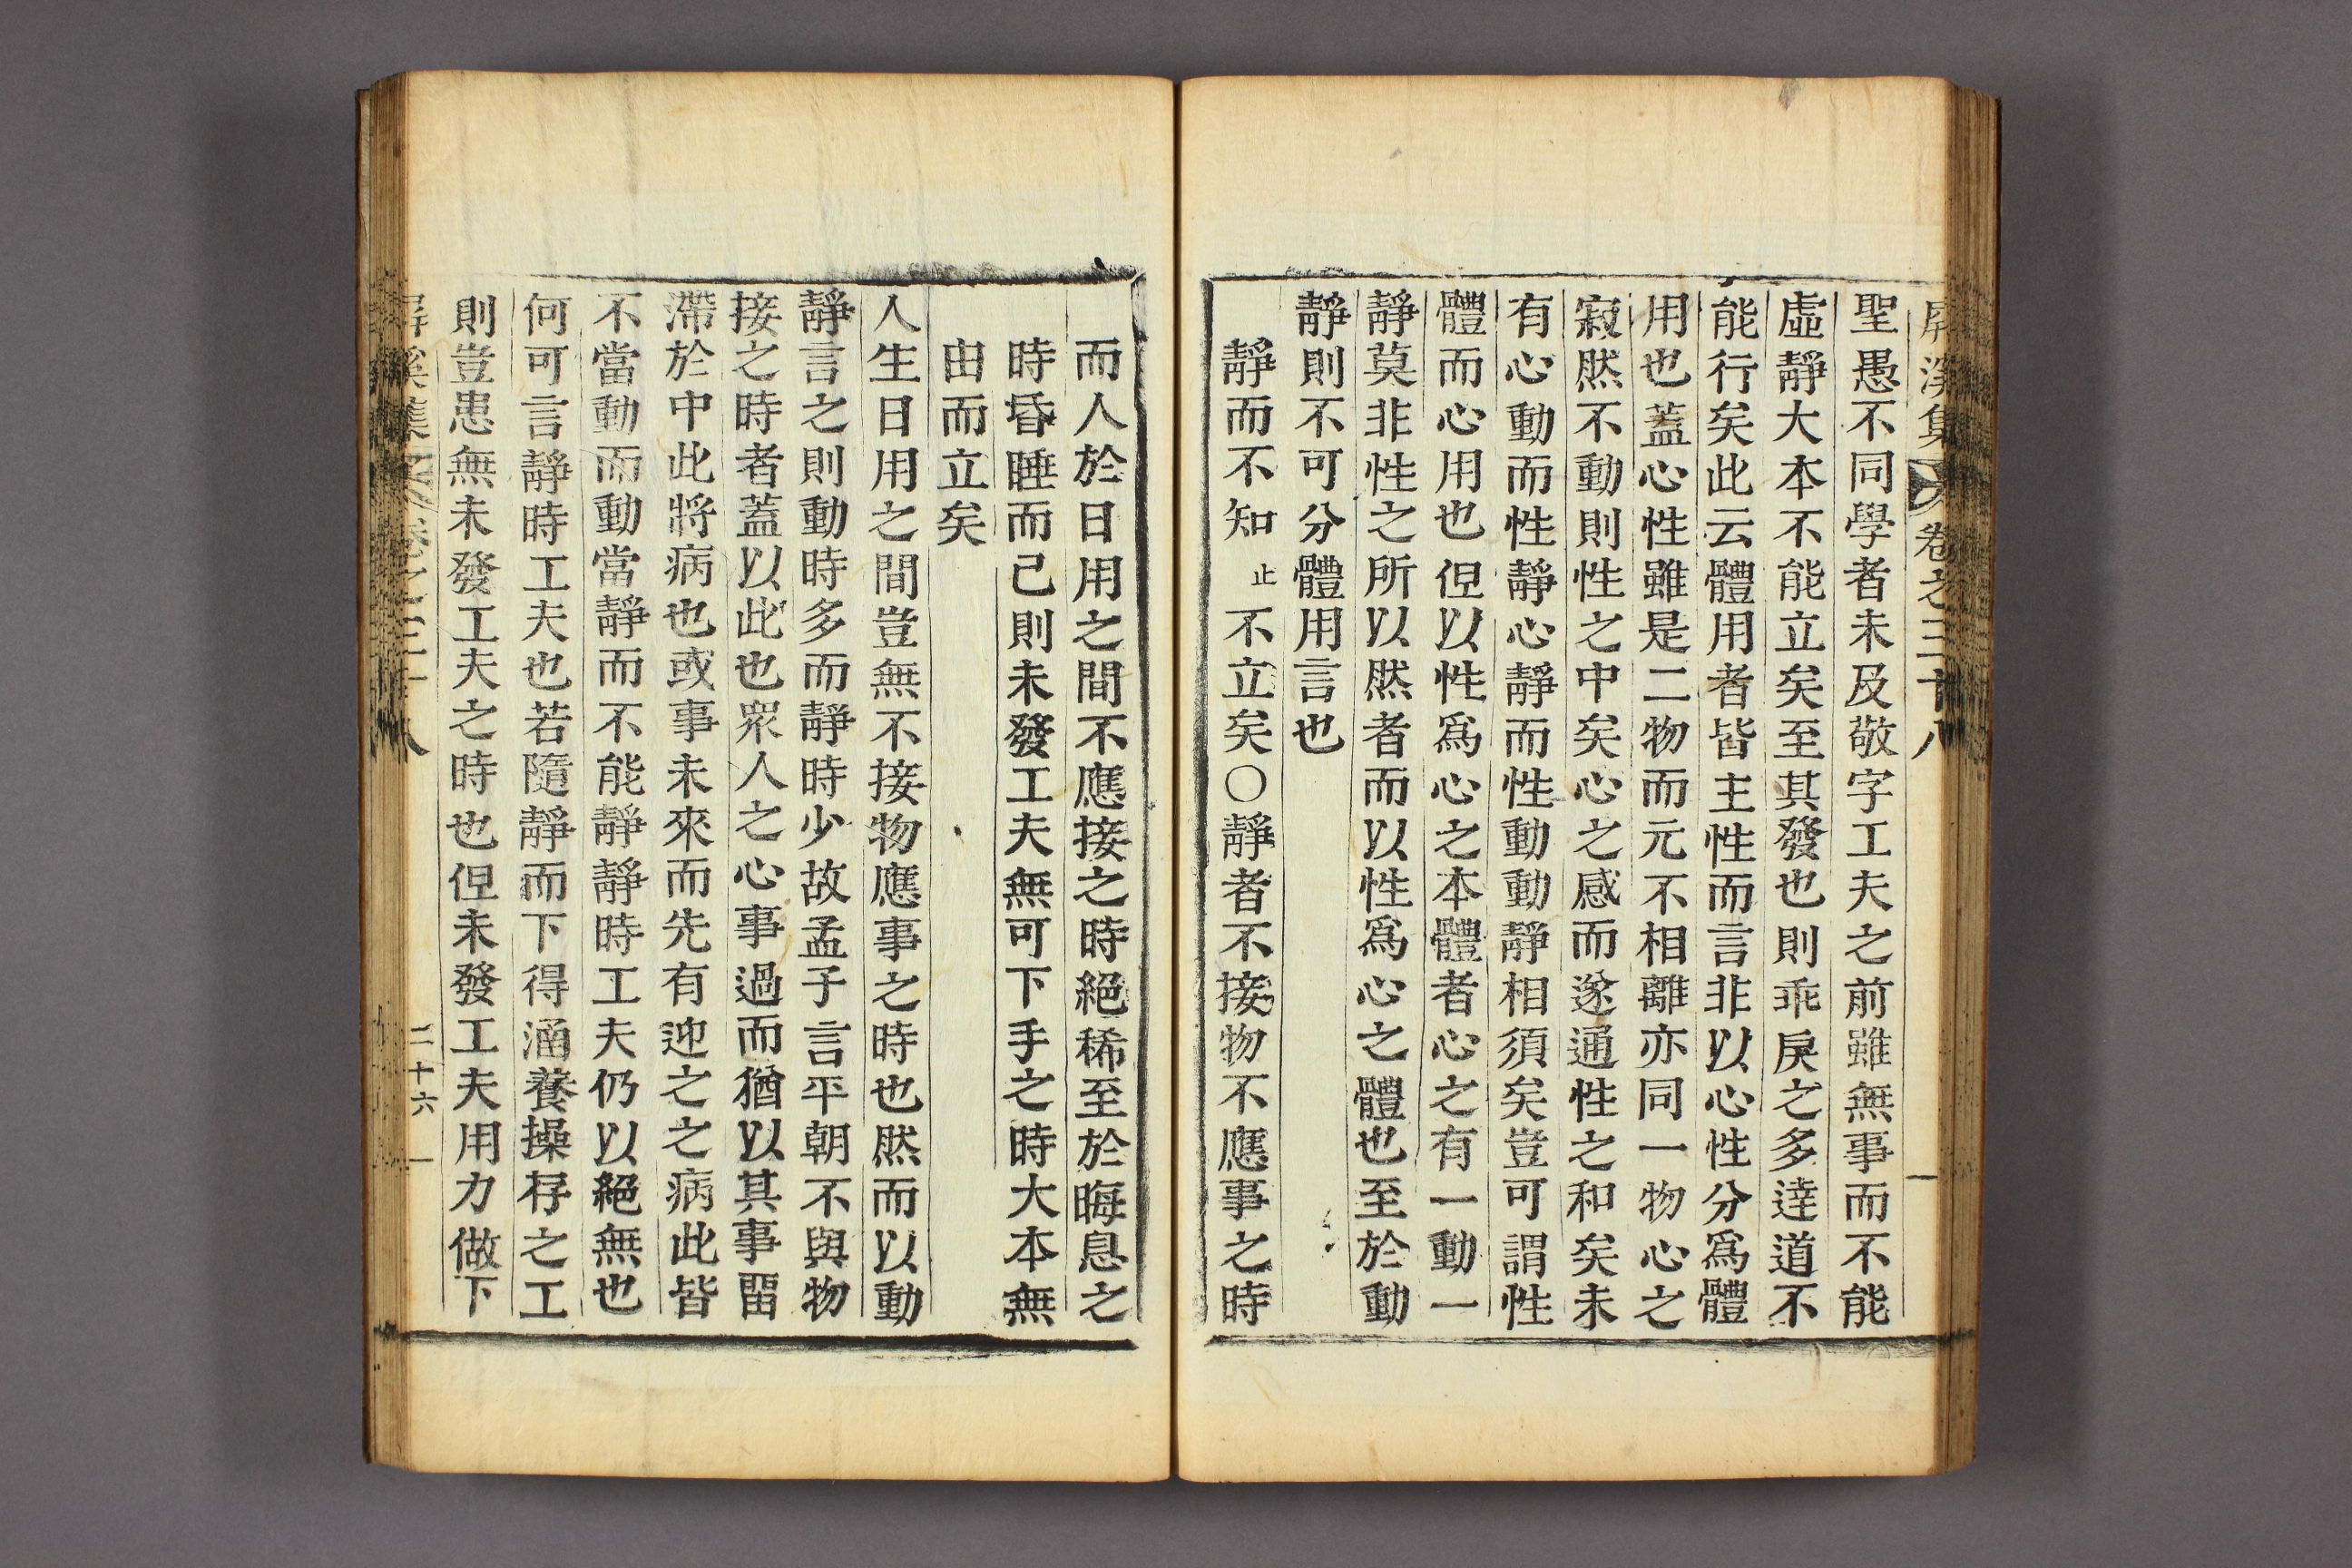 屏溪集 卷之三十八
聖愚不同學者未及敬字工夫之前雖無事而不能
虛靜大本不能立矣至其發也則乖戾之多達道不
能行矣此云體用者皆主性而言非以心性分爲體
用也蓋心性雖是二物而元不相離亦同一物心之
寂然不動則性之中矣心之感而遂通性之和矣未
有心動而性靜心靜而性動動靜相須矣豈可謂性
體而心用也但以性爲心之本體者心之有一動一
靜莫非性之所以然者而以性爲心之體也至於動
靜則不可分體用言也
靜而不知止不立矣○靜者不接物不應事之時
而人於日用之間不應接之時絕稀至於晦息之
時昏睡而已則未發工夫無可下手之時大本無
由而立矣
人生日用之間豈無不接物應事之時也然而以動
靜言之則動時多而靜時少故孟子言平朝不與物
接之時者蓋以此也衆人之心事過而猶以其事留
滯於中此將病也或事未來而先有迎之之病此皆
不當動而動當靜而不能靜靜時工夫仍以絕無也
何可言靜時工夫也若隨靜而下得涵養操存之工
則豈患無未發工夫之時也但未發工夫用力做下
屏溪集 卷之三十八 二十六